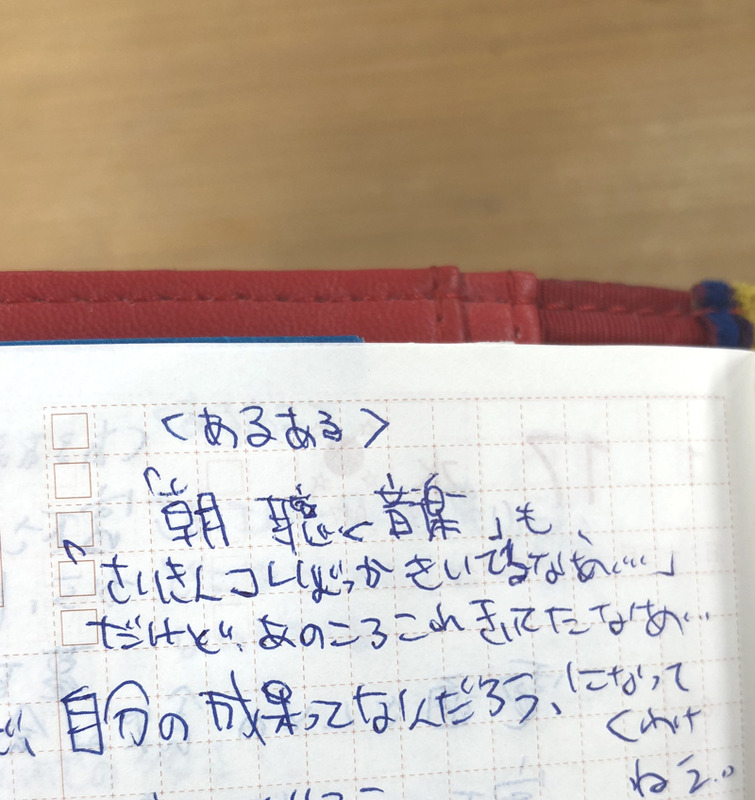 <あるある>
「朝聴く音楽」も、
「さいきんコレばっかきいてるなあ…」
だけど、あのころこれきいてたなあ…
自分の成果ってなんだろう、になって
くわけ
ねえ。